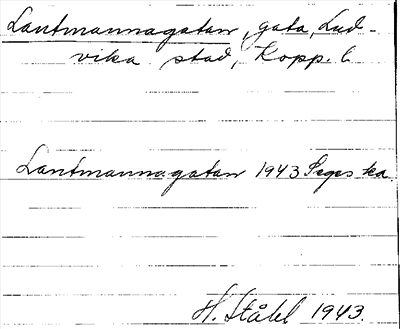 Lantmannagatan, gata, Lud-
vika stad, Kopp. l
Lantmannagatan 1943
H. Ståhl 1943.